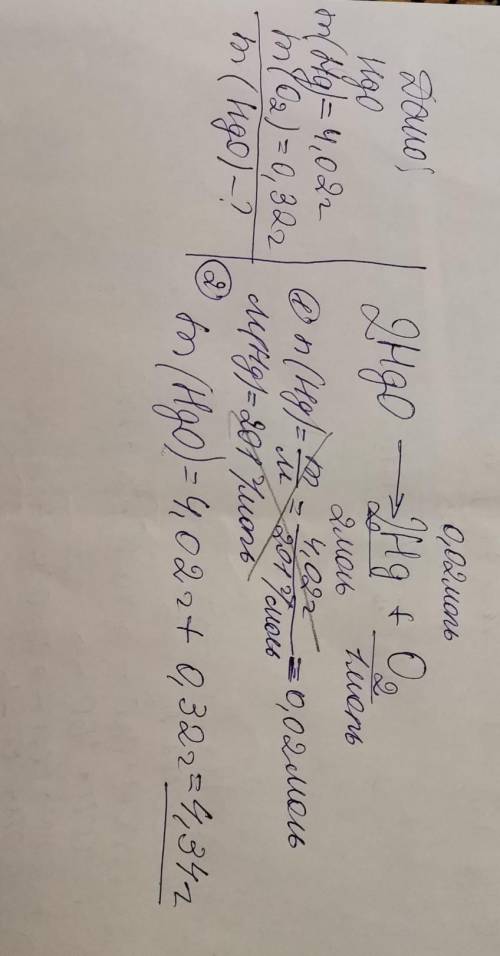 Дано:
HgO
m(Hg)=4,02г
m(O2)=0,32г
m(HgO)-?
0,02моль
2HgO → 2Hg + O2
2моль 1моль
① n(Hg)= m/M = 4,02г/201г/моль = 0,02моль
M(Hg)=201г/моль
② m(HgO)=4,02г+0,32г=4,34г